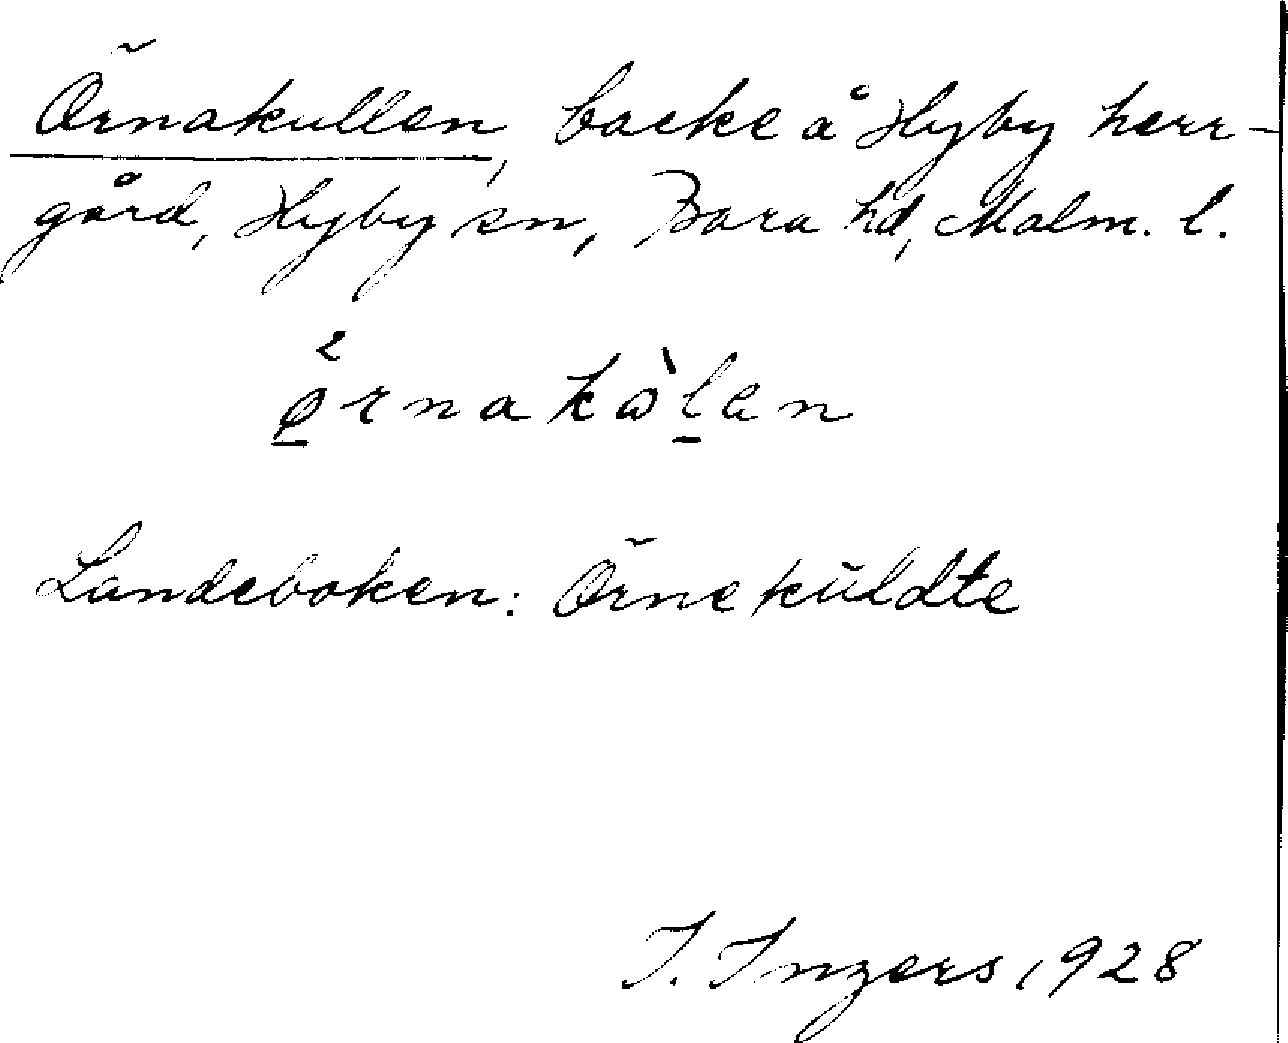 Örnakullen, backe å Hyby herr-
gård, Hyby sn, Bara hd, Malm. l.
ø̱²rnakɷ̀ḻan
Landeboken: Örneküldte
I. Ingers 1928